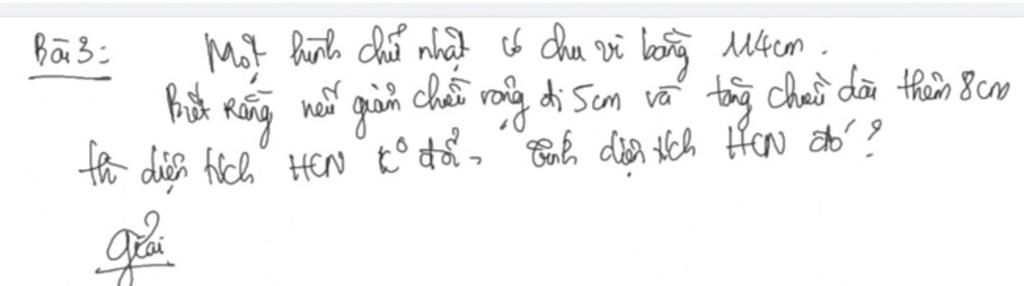 Bài 3: Một hình chữ nhật có chu vi bằng 114cm.
Biết rằng nếu giảm chiều rộng đi 5cm và tăng chiều dài thêm 8cm
thì diện tích HCN k° đổi. Tính diện tích HCN đó?
Giải